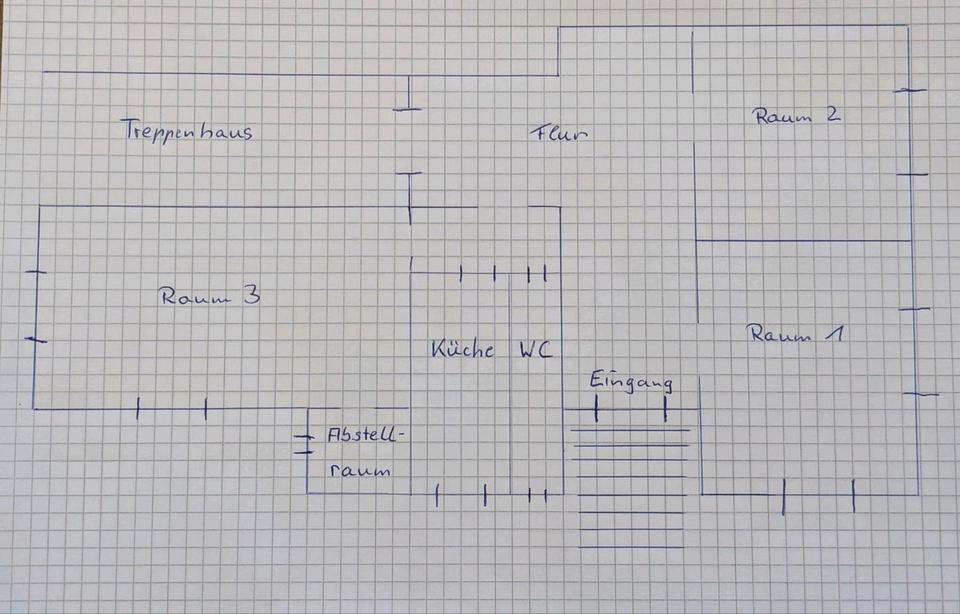 Treppenhaus
Flur
Raum 2
Raum 3
Küche
WC
Raum 1
Eingang
Abstell-
raum